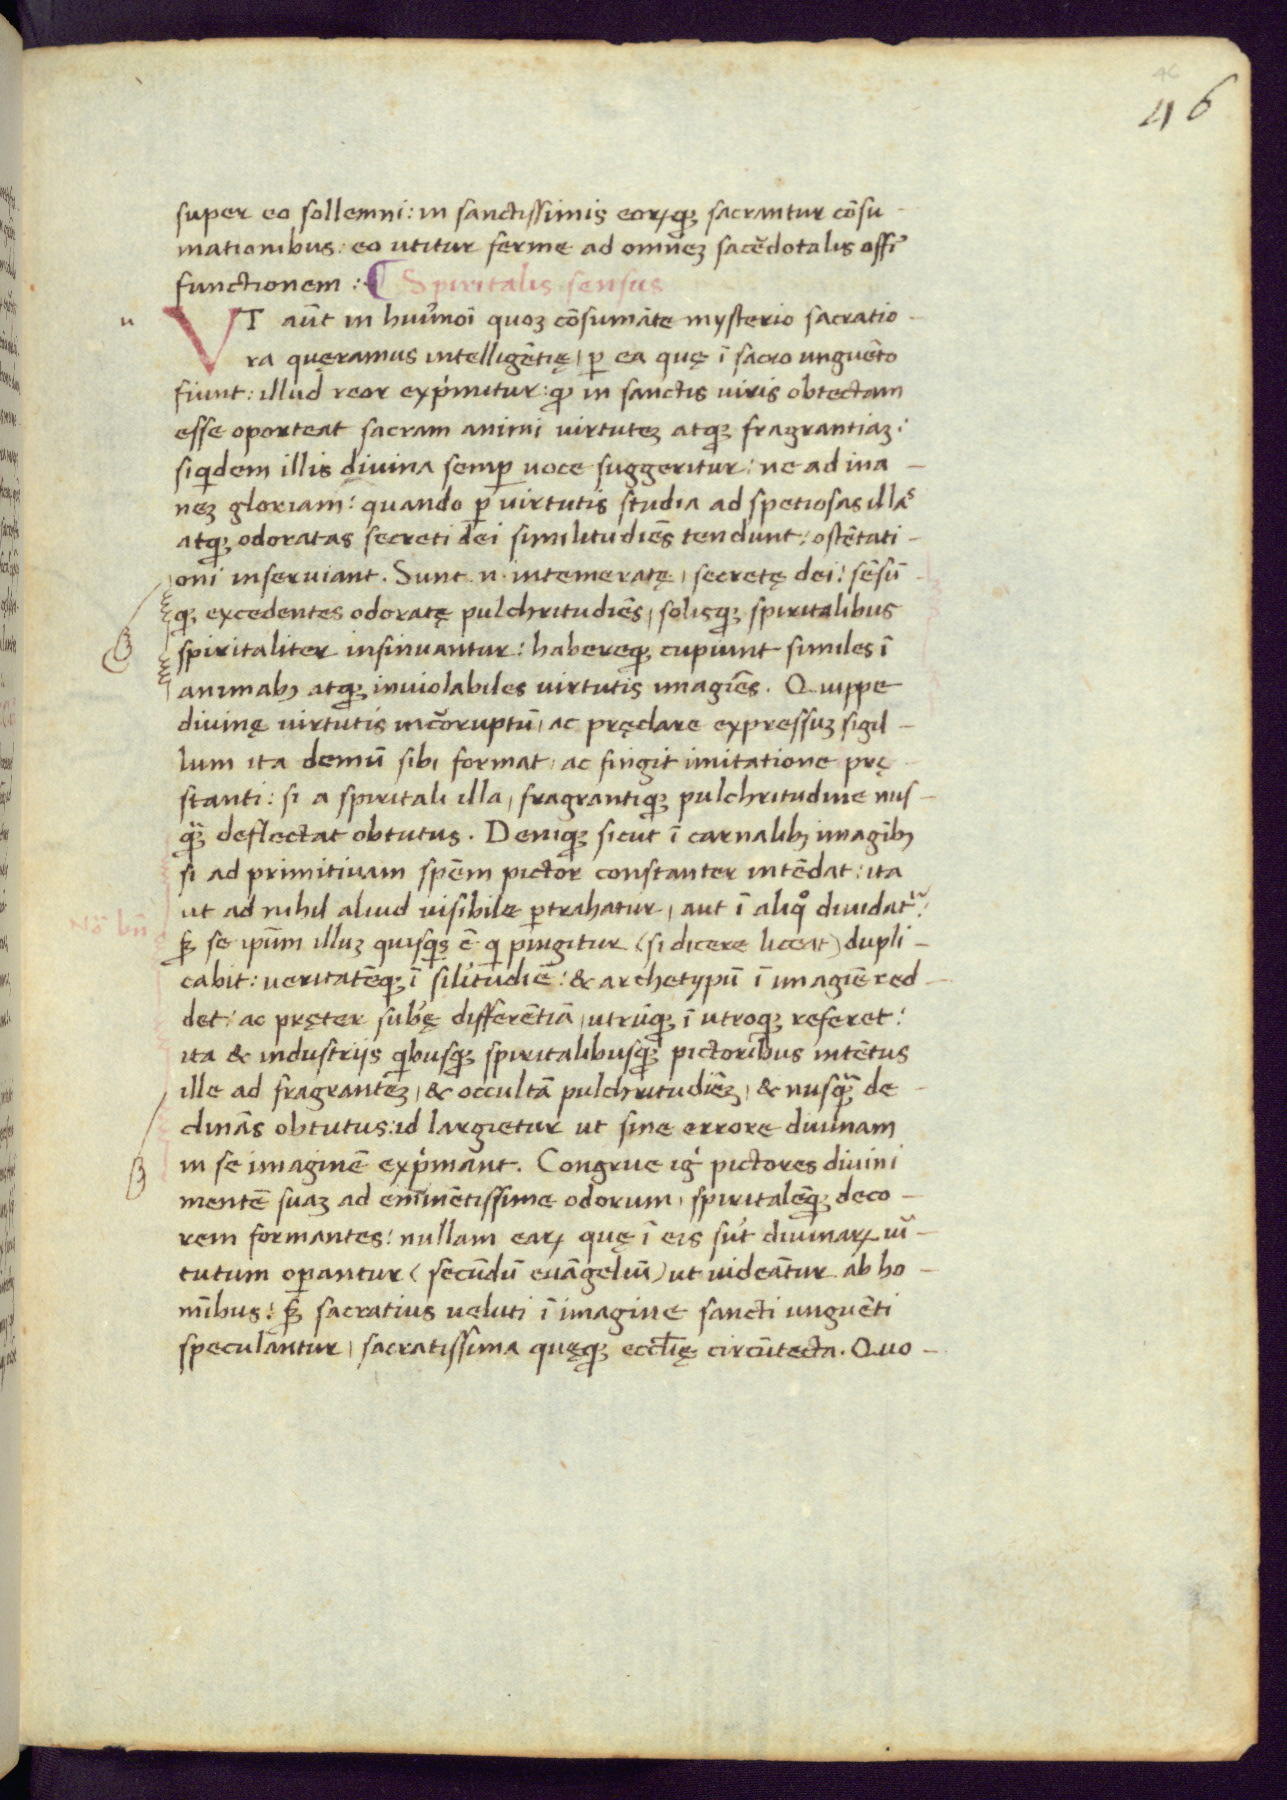 46
46
super eo sollemni: in sanctissimis eorꝝqꝫ sacrantur cōsu-
mationibus: eo utitur ferme ad omnēꝫ sacēdotalis offi͛
functionem: ⁌ Spiritalis sensus
u
VT aūt in huiꝰmoī quoꝫ cōsumāte mysterio sacratio-
ra quęramus intelligētię, ꝑ ea quę ī sacro unguēto
fiunt: illud reor exp̍mitur: ꝙ in sanctis uiris obtectam
esse oporteat sacram animi uirtuteꝫ atqꝫ fragrantiaꝫ:
siqdem illis diuina semꝑ uoce suggeritur: ne ad ina-
neꝫ gloriam: quando ꝑ uirtutis studia ad spetiosas illas
atqꝫ odoratas secreti dei similitudiēs tendunt: ostētati-
oni inseruiant. Sunt .n. intemeratę, secretę dei: sēsū-
qꝫ excedentes odoratę pulchritudiēs, solisqꝫ spiritalibus
spiritaliter insinuantur: habereqꝫ cupiunt similes ī
animabꝫ atqꝫ inuiolabiles uirtutis imagiēs. Quippe
diuinę uirtutis incōruptū, ac pręclare expressuꝫ sigil-
lum ita demū sibi format, ac fingit imitatione prę-
stanti: si a spiritali illa, fragrantiqꝫ pulchritudine nus-
q̄ꝫ deflectat obtutus. Deniqꝫ sicut ī carnalibꝫ imagībꝫ
si ad primitiuam spēm pictor constanter intēdat: ita
ut ad nihil aliud uisibile ꝑtrahatur, aut ī aliqͦ diuidatͬ:
Nō bn̄
sꝫ se ipūm illuꝫ quisqs ē q pingitur (si dicere liceat) dupli-
cabit: ueritatēqꝫ ī sili̍tudiē: & archetypū ī imagiē red-
det: ac pręter subę̄ differētiā, utrūqꝫ ī utroqꝫ referet:
ita & industrijs qbusqꝫ spiritalibusqꝫ pictoribus intētus
ille ad fragrantēꝫ, & occultā pulchritudiēꝫ, & nusq̄ꝫ de-
clināns obtutus: id largietur ut sine errore diuinam
in se imaginē exp̍mant. Congrue ig̍ pictores diuini
mentē suaꝫ ad eminētissime odorum, spiritalēqꝫ deco-
rem formantes: nullam earꝝ quę ī eis sūt diuinarꝝ uͥr-
tutum oꝑantur (secūdū euāgeliū) ut uideātur ab ho-
mībus: sꝫ sacratius ueluti ī imagine sancti unguēti
speculāntur, sacratissima quęqꝫ ecclīę circūtecta. Quo-